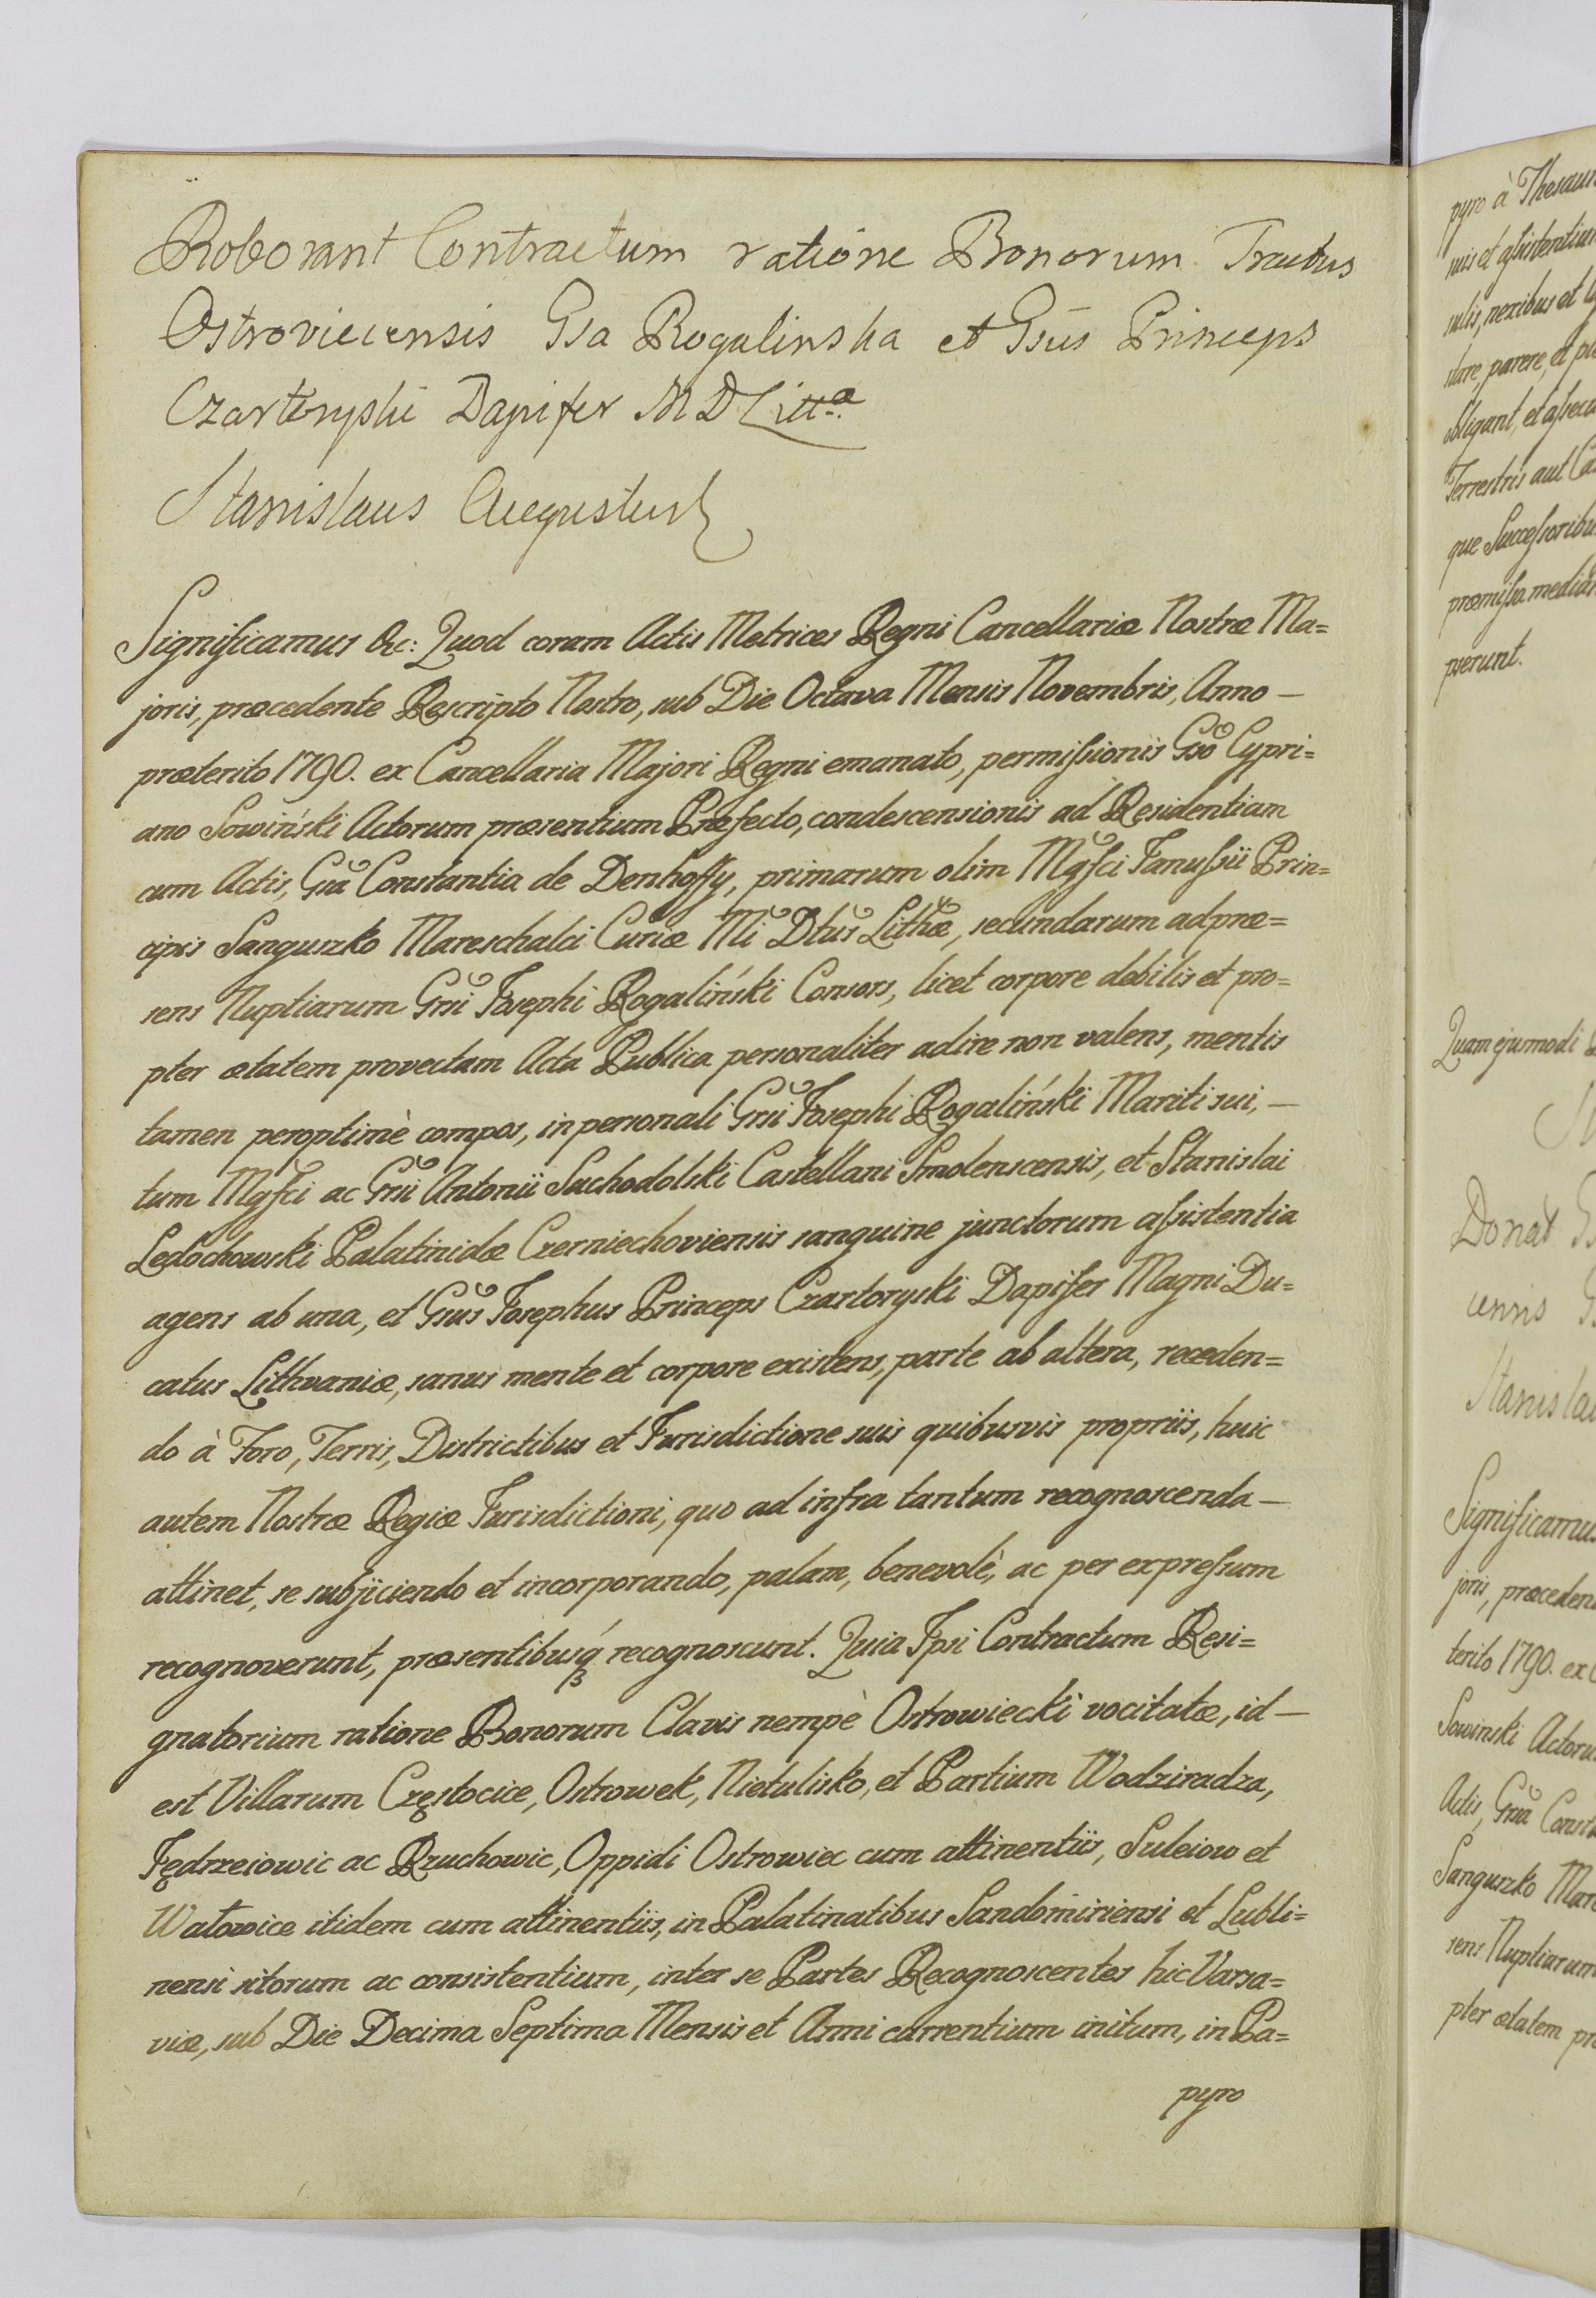 Roborant Contractum ratione Bonorum Tractus
Ostroviecensis Gsa Rogalinska et Gsus Princeps
Czartoryski Dapifer M D Litt.æ
Stanislaus Augustus
Significamus &c: Quod coram Actis Metrices Regni Cancellariæ Nostræ Ma=
joris, præcedente Rescripto Nostro, sub Die Octava Mensis Novembris, Anno —
præterito 1790. ex Cancellaria Majori Regni emanato, permissionis Gso Cypri=
ano Sowiński Actorum præsentium Præfecto, condescensionis ad Residentiam
cum Actis, Gsa Constantia de Denhoffy, primarum olim Mgfci Janussii Prin=
cipis Sanguszko Mareschalci Curiæ Mi Dtus Lithæ, secundarum ad præ=
sens Nuptiarum Gsi Josephi Rogaliński Consors, licet corpore debilis et pro=
pter ætatem provectam Acta Publica personaliter adire non valens, mentis
tamen peroptimè compos, in personali Gsi Josephi Rogaliński Mariti sui, —
tum Mgfci ac Gsi Antonii Suchodolski Castellani Smolenscensis, et Stanislai
Ledochowski Palatinidæ Czerniechoviensis sanguine junctorum assistentia
agens ab una, et Gsus Josephus Princeps Czartoryski Dapifer Magni Du=
catus Lithvaniæ, sanus mente et corpore existens, parte ab altera, receden=
do à Foro, Terris, Districtibus et Jurisdictione suis quibusvis propriis, huic
autem Nostræ Regiæ Jurisdictioni, quo ad infra tantum recognoscenda —
attinet, se subjiciendo et incorporando, palam, benevolè, ac per expressum
recognoverunt, præsentibusq́ recognoscunt. Quia Ipsi Contractum Resi=
gnatorium ratione Bonorum Clavis nempè Ostrowiecki vocitatæ, id —
est Villarum Częstocice, Ostrowek, Nietulisko, et Partium Wodziradza,
Jędrzeiowic ac Bzuchowic, Oppidi Ostrowiec cum attinentiis, Suleiow et
Watowice itidem cum attinentiis, in Palatinatibus Sandomiriensi et Lubli=
nensi sitorum ac consistentium, inter se Partes Recognoscentes hic Varsa=
viæ, sub Die Decima Septima Mensis et Anni currentium initum, in Pa=
pyro
pyro à Thesaur
suis et assistentium
sulis, nexibus et
stare, parere, et
obligant, et assecu
Terrestris aut Ca
que Successoribu
præmissa median
pserunt.
Quam ejusmodi
Donat
censis
Stanislau
Significamus
joris, præceden
terito 1790. ex
Sowinski Actoru
Actis, Gsa Consta
Sanguszko Mare
sens Nuptiarum
pter ætatem pro